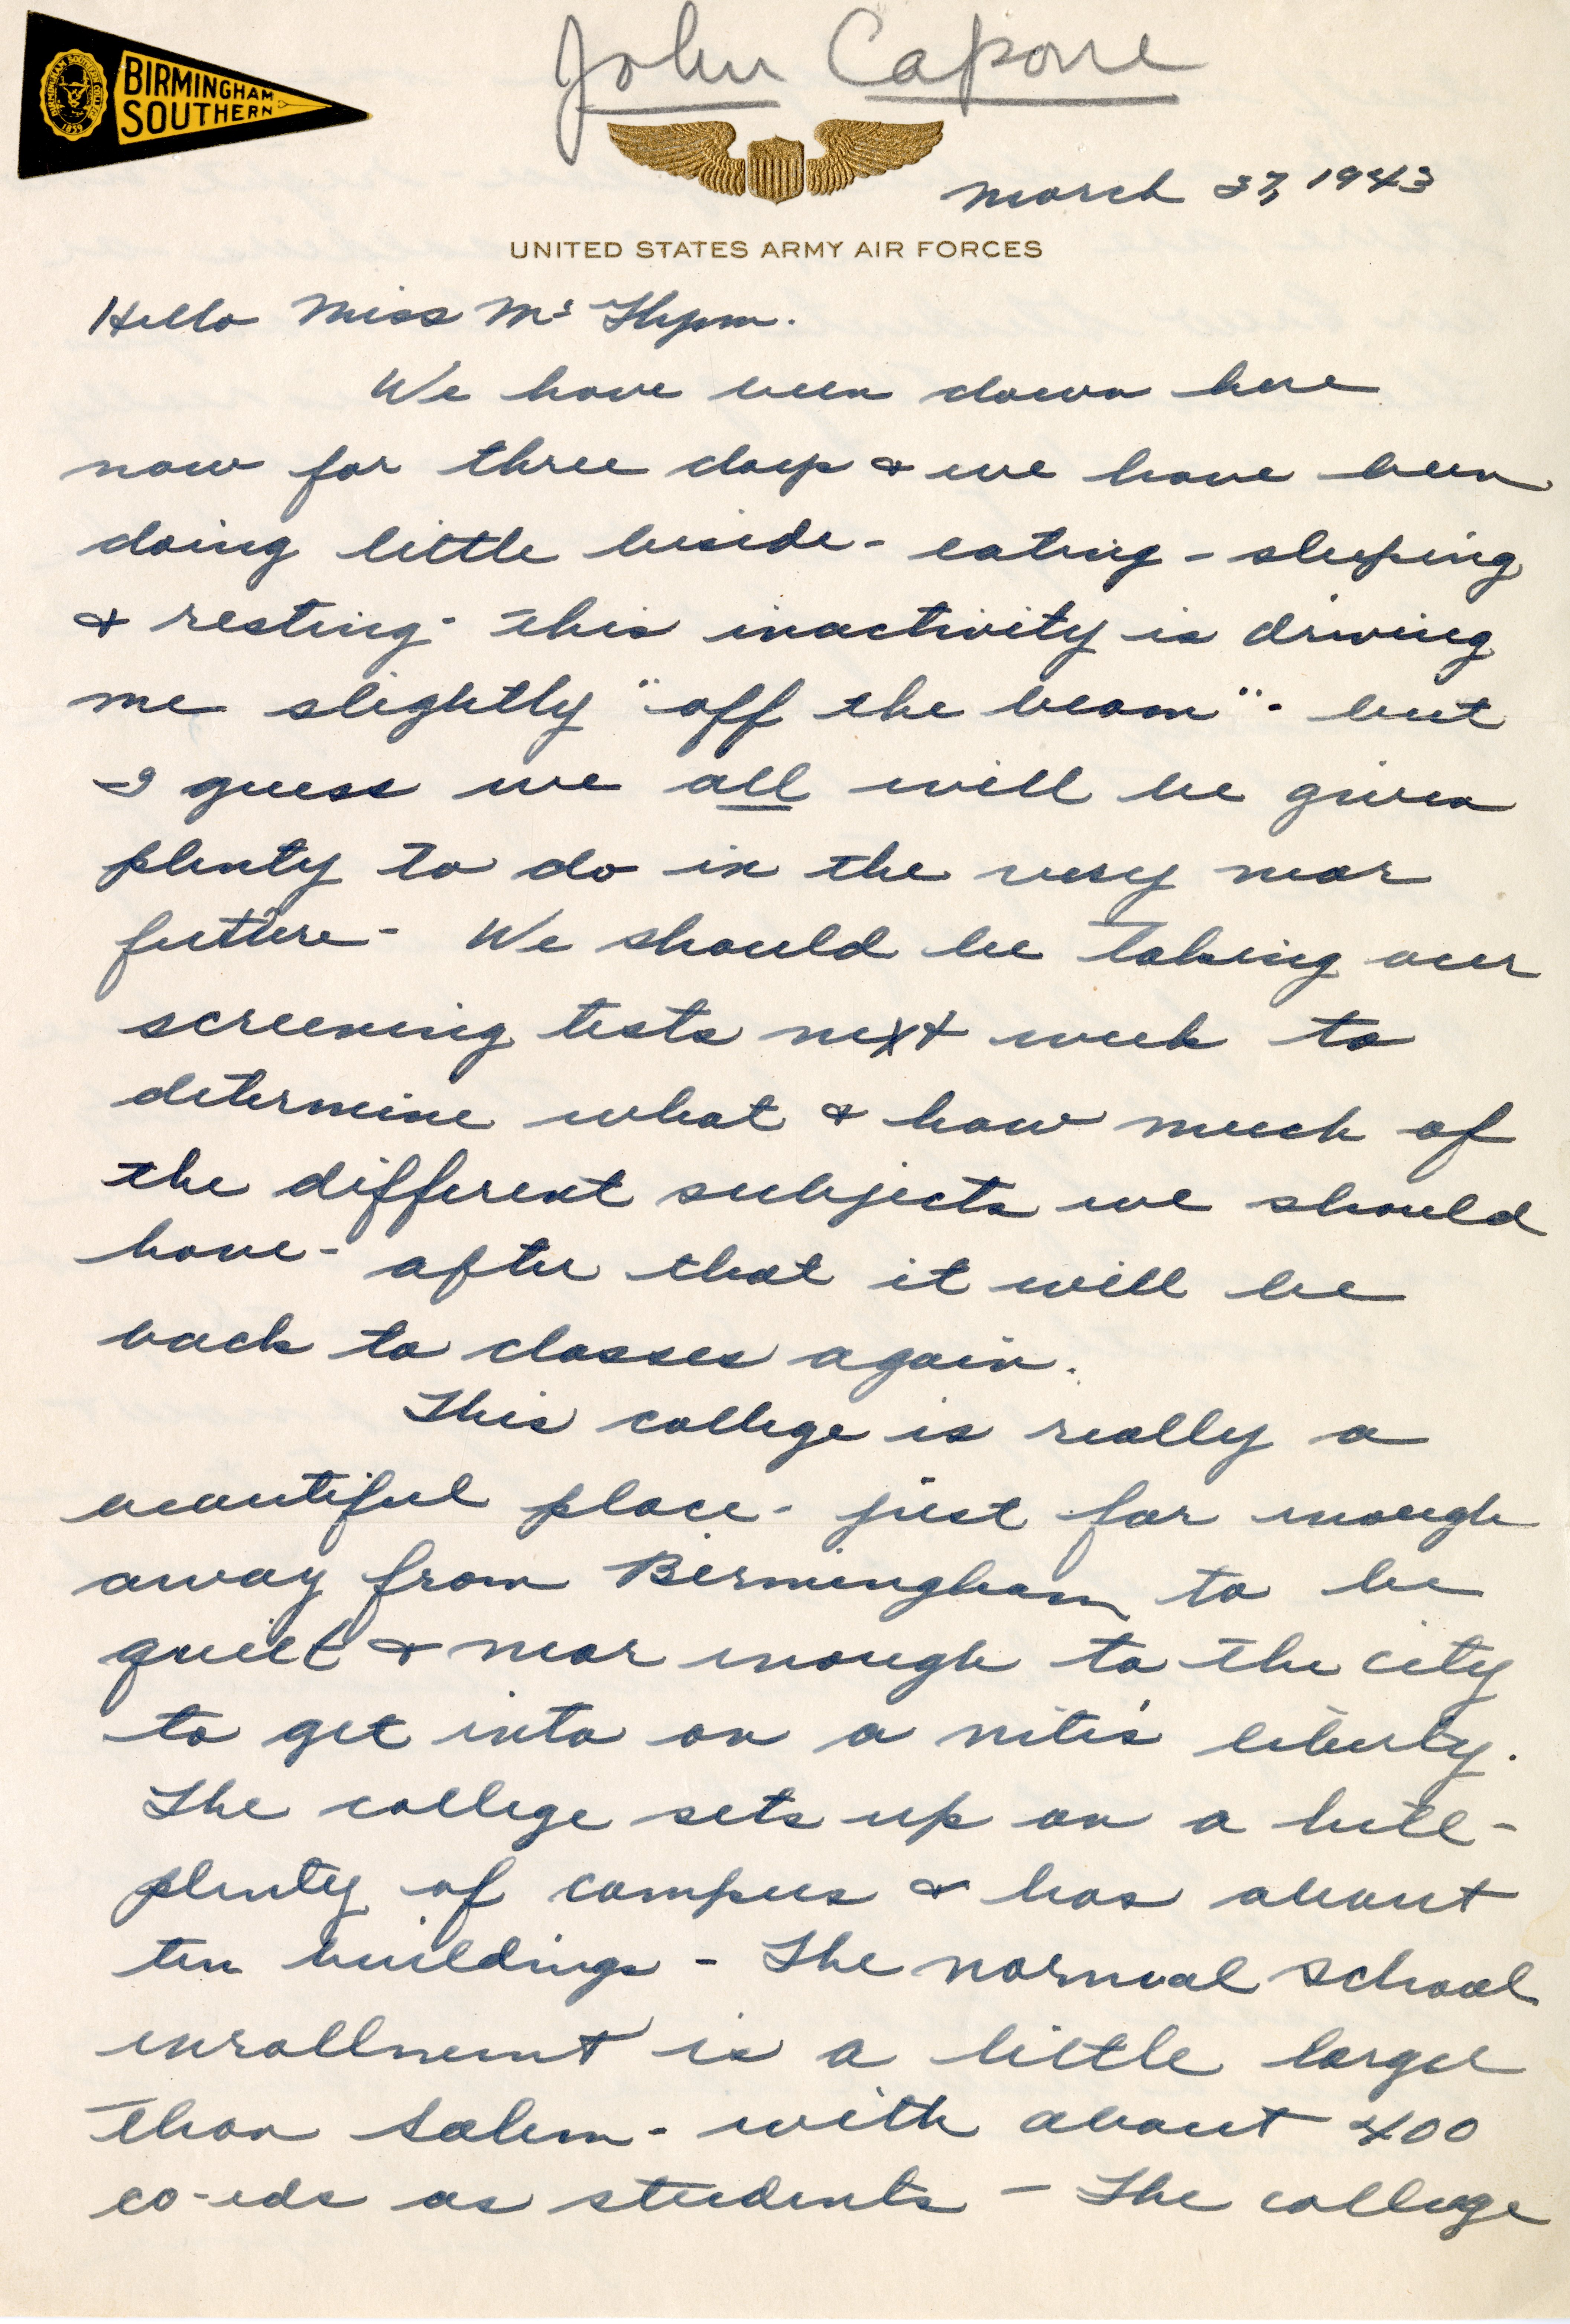 John Capone
BIRMINGHAM
SOUTHERN
1859
March 27, 1943
UNITED STATES ARMY AIR FORCES
Hello Miss Mc
We have been down here
now for three days & we have been
doing little beside - eating - sleeping
& resting - This inactivity is driving
me slightly "off the beam" - but
I guess we all will be given
plenty to do in the very near
future - We should be taking our
screening tests next week to
determine what & how much of
the different subjects we should
have - after that it will be
back to classes again.
This college is really a
beautiful place - just far enough
away from Birmingham to be
quiet & near enough to the city
to get into on a nite's liberty.
The college sets up on a hill -
plenty of campus & has about
ten buildings - The normal school
enrollment is a little larger
than Salem - with about 400
co-eds as students - The college